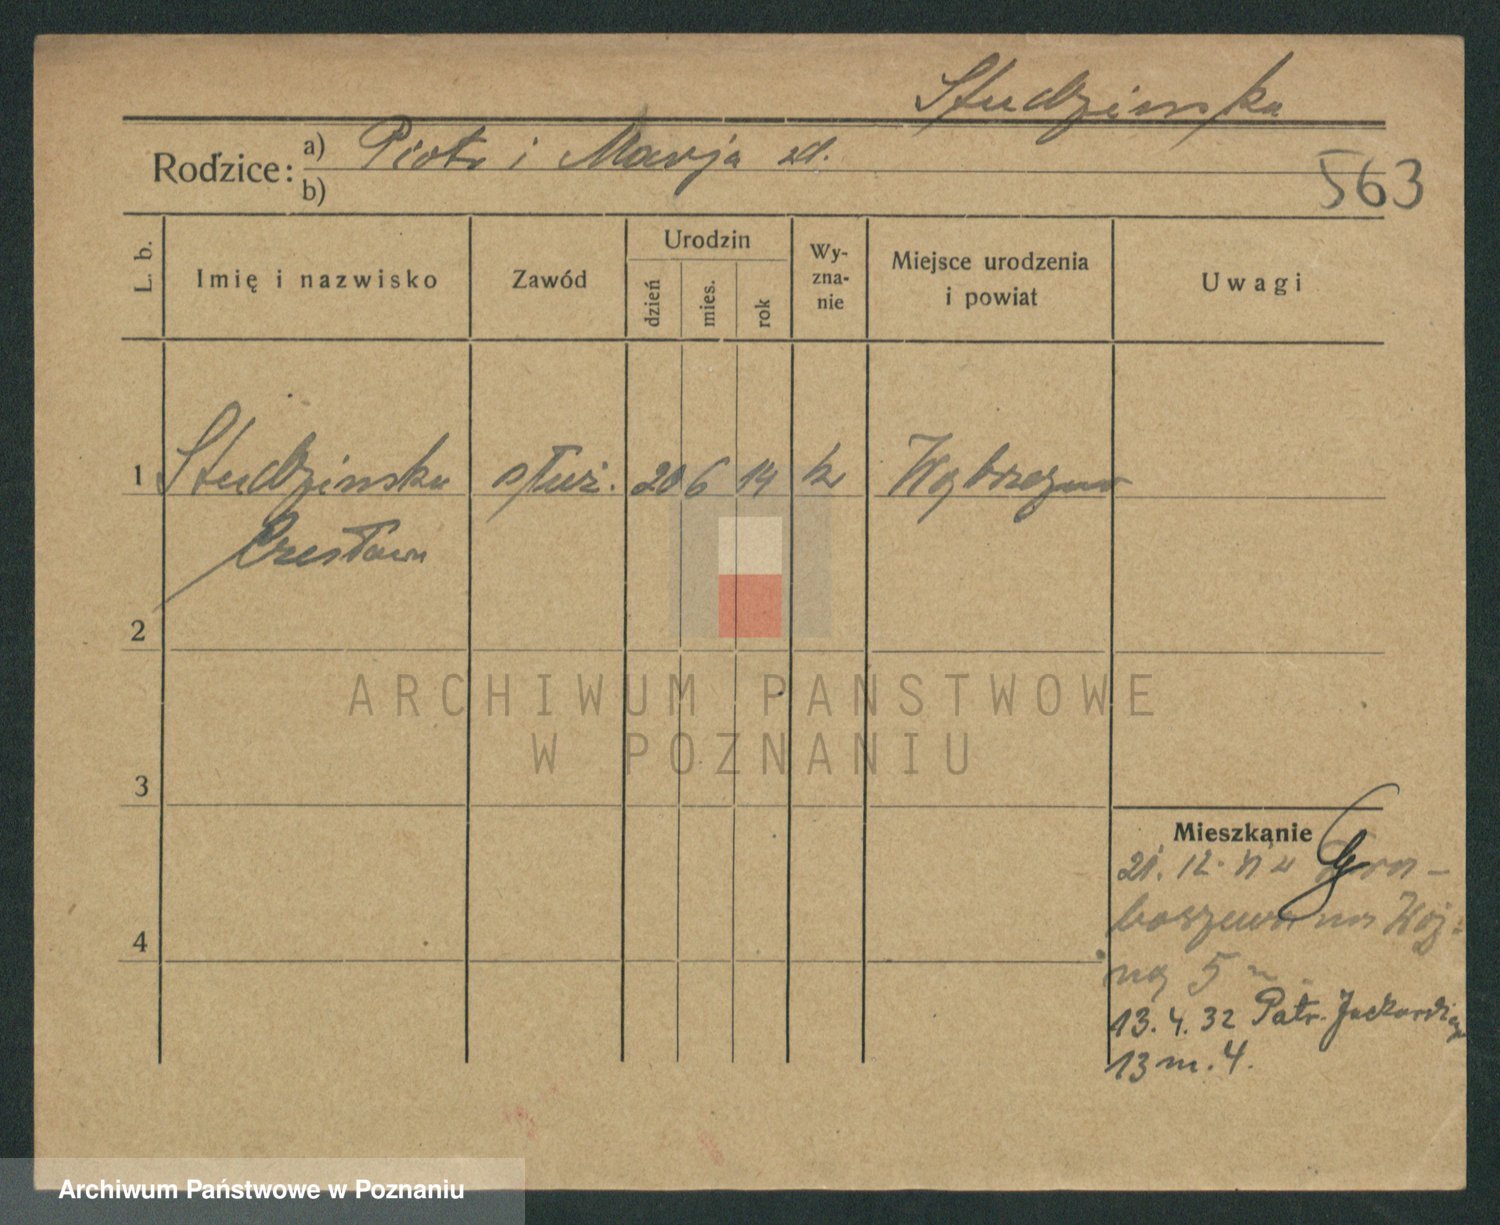 Studzinska
Rodzice: a) Piotr i Marja zd.
b)
563
L. b.
Imię i nazwisko
Zawód
Urodzin
dzień
mies.
rok
Wy-
zna-
nie
Miejsce urodzenia
i powiat
Uwagi
1 Studzinska służ. 20 6 14 k Wąbrzezno
Czesława
2
3
4
Mieszkanie
21. 12.
boszewo na
5
13. 4. 32 Patr. Jackowskiego
13 m. 4.
ARCHIWUM PAŃSTWOWE
W POZNANIU
Archiwum Państwowe w Poznaniu